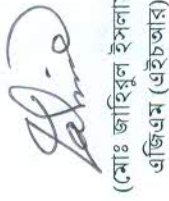 (মোঃ জাহিরুল ইসলা
এজিএম (এইচআর)